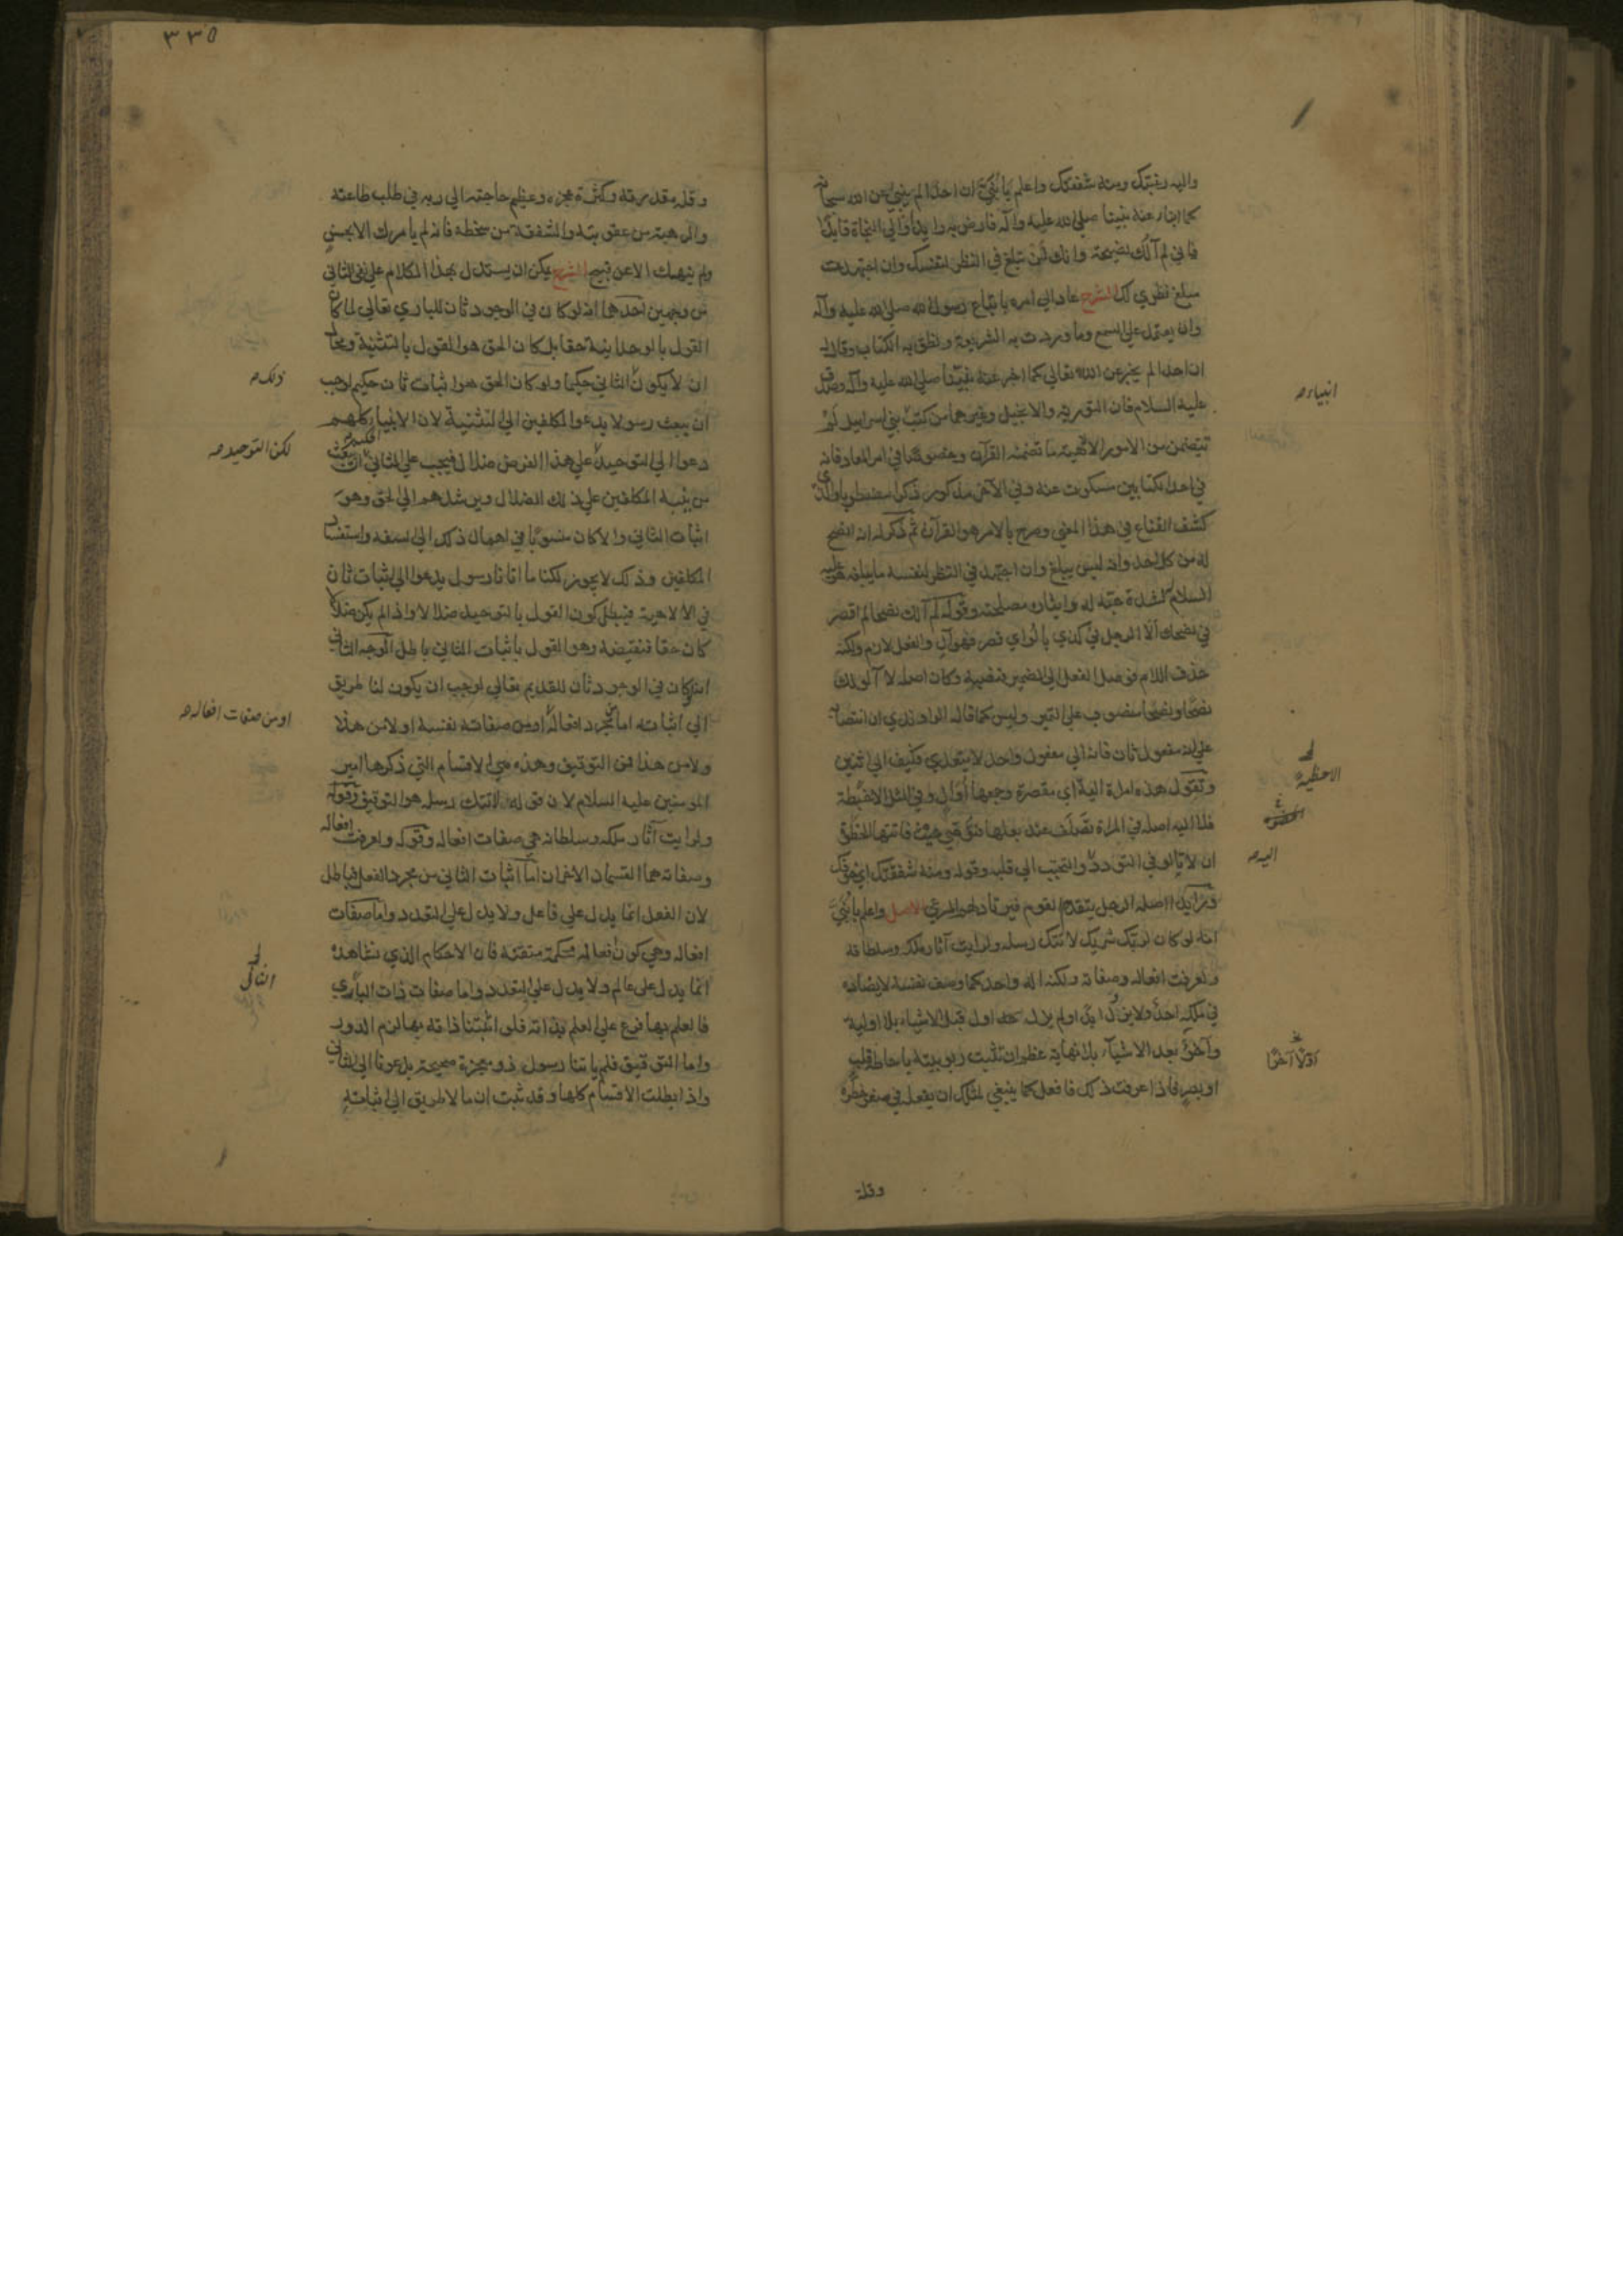 واليه رغبتك ومنه شفقتك واعلم يا بني ان احدا لم ينبئ عن الله سبحانه
كما انبا عنه نبينا صلى الله عليه وآله فارض به رايدا والى النجاة قايدا
فاني لم آلك نصيحة وانك لن تبلغ في النظر لنفسك وان اجتهدت
مبلغ نظري لك الشرح عاد الى امره باتباع رسول الله صلى الله عليه وآله
وان يعتمد على السمع وما وردت به الشريعة ونطق به الكتاب وقال له
ان احدا لم يخبر عن الله تعالى كما اخبر عنه نبينا صلى الله عليه وآله وصدق
عليه السلام فان التورية والانجيل وغيرهما من كتب بني اسراييل لم
انبياء صح
تتضمن من الامور الالهية ما تضمنه القرآن وخصوصا في امر المعاد فانه
في احد الكتابين مسكوت عنه وفي الآخر مذكور ذكرا مضطربا والذي
كشف القناع في هذا المعنى وصرح بالامر هو القرآن ثم ذكر له انه انصح
له من كل احد وانه ليس يبلغ وان اجتهد في النظر لنفسه ما يبلغه هو عليه
السلام لشدة حبه له وايثاره مصلحته وقوله لم آلك نصحا لم اقصر
في نصحك الا الرجل في كذي يالو اي قصر فهو آل والفعل لازم ولكنه
حذف اللام فوصل الفعل الى الضمير فنصبه وكان اصله لا آلو لك
نصحا ونصحا منصوب على التمييز وليس كما قاله الراوندي ان انتصابه
على انه مفعول ثان فانه الى مفعول واحد لا يتعدى فكيف الى اثنين
وتقول هذه امراة آلية اي مقصرة وجمعها اوال وفي المثل الا حظية
الاحظية
فلا اليه اصله في المراة تصلف عند بعلها
ان لا تالو في التودد والتحبب الى قلبه وقوله ومنه شفقتك اي خوفك
اليه صح
ورايد اصله الرجل يتقدم القوم فيرتاد لهم المرعى الاصل واعلم يا بني
انه لو كان لربك شريك لاتتك رسله ولرايت آثار ملكه وسلطانه
ولعرفت افعاله وصفاته ولكنه اله واحد كما وصف نفسه لا يضاده
في ملكه احد ولا يزول ابدا ولم يزل اول قبل الاشياء بلا اولية
وآخر بعد الاشيآء بلا نهاية عظم ان تثبت ربوبيته باحاطة قلب
اولا آخرا
او بصر فاذا عرفت ذلك فافعل كما ينبغي لمثلك ان يفعله في صغر خطره
وقلة
٣٣٥
وقلة مقدرته وكثرة عجزه وعظيم حاجته الى ربه في طلب طاعته
والرهبة من عقوبته والشفقة من سخطه فانه لم يامرك الا بحسن
ولم ينهك الا عن قبيح الشرح يمكن ان يستدل بهذا الكلام على نفي الثاني
من وجهين احدهما انه لو كان في الوجود ثان للباري تعالى لما كان
القول بالوحدانية حقا بل كان الحق هو القول بالتثنية ومحال
ان لا يكون الثاني حكيما ولو كان الحق هو اثبات ثان حكيم لوجب
ذلك صح
ان يبعث رسولا يدعو المكلفين الى التثنية لان الانبياء كلهم
دعوا الى التوحيد على هذا الفرض ضلال فيجب على الثاني الحكيم ان يبعث
لكن التوحيد صح
من ينبه المكلفين على ذلك الضلال ويرشدهم الى الحق وهو
اثبات الثاني والا كان منسوبا في اهمال ذلك الى السفه واستفساد
المكلفين وذلك لا يجوز لكنا ما اتانا رسول يدعو الى اثبات ثان
في الالاهية فبطل كون القول بالتوحيد ضلالا واذا لم يكن ضلالا
كان حقا فنقيضه وهو القول باثبات الثاني باطل الوجه الثاني
انه لو كان في الوجود ثان للقديم تعالى لوجب ان يكون لنا طريق
الى اثباته اما من مجرد افعاله او من صفاته نفسه او لا من هذا
او من صفات افعاله صح
ولا من هذا فمن التوقيف وهذه هي الاقسام التي ذكرها امير
المومنين عليه السلام لان قوله لاتتك رسله هو التوقيف وقوله
ولرايت آثار ملكه وسلطانه هي صفات افعاله وقوله ولعرفت افعاله
وصفاته هما القسمان الاخران اما اثبات الثاني من مجرد الفعل فباطل
لان الفعل انما يدل على فاعل ولا يدل على التعدد واما صفات
افعاله وهي كون افعاله محكمة متقنة فان الاحكام الذي نشاهده
انما يدل على عالم ولا يدل على التعدد واما صفات ذات الباري
فالعلم بها فرع على العلم بذاته فلو اثبتنا ذاته بها لزم الدور
واما التوقيف فلم ياتنا رسول ذو معجزة صحيحة يدعونا الى الثاني
واذا بطلت الاقسام كلها وقد ثبت ان ما لا طريق الى اثباته